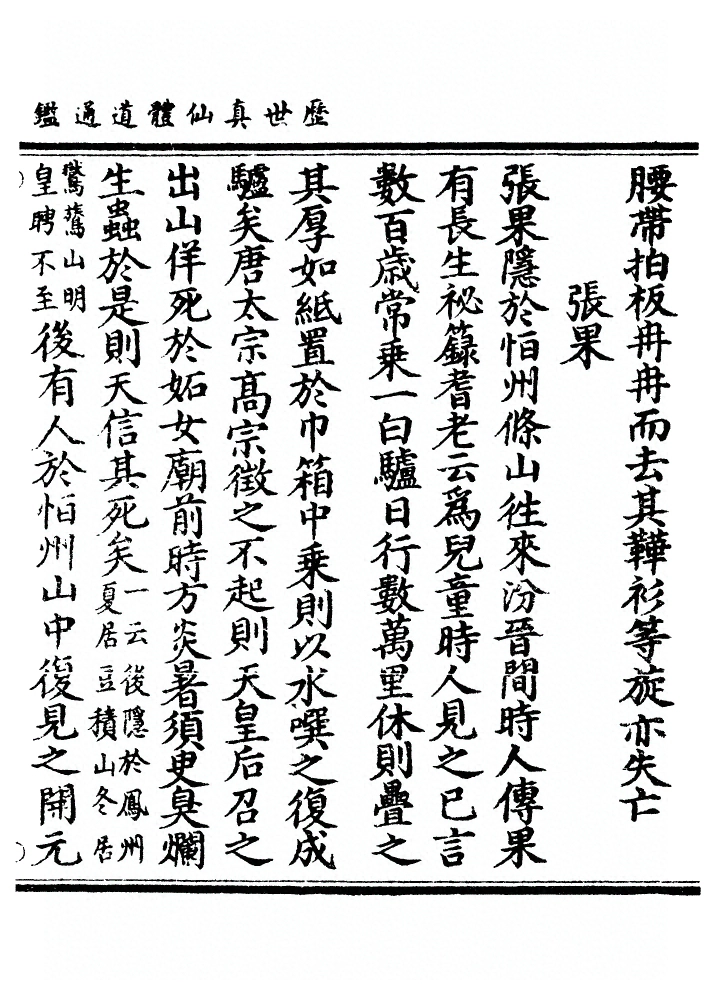 歷世真仙體道通鑑
腰帶拍板冉冉而去其鞾衫等旋亦失亡
張果
張果隱於恒州條山徃來汾晉間時人傳果
有長生祕籙耆老云爲兒童時人見之已言
數百歲常乘一白驢日行數萬里休則疊之
其厚如紙置於巾箱中乘則以水噀之復成
驢矣唐太宗髙宗徵之不起則天皇后召之
出山佯死於妬女廟前時方炎暑須臾臭爛
生蟲於是則天信其死矣一云後隱於鳳州夏居豆積山冬居
鸑鷟山明皇聘不至後有人於恒州山中復見之開元